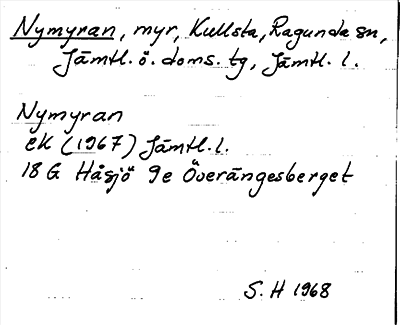 Nymyran, myr, Kullsta, Ragunda sn,
Jämtl. ö. doms. tg, Jämtl. l.
Nymyran
ek (1967) Jämtl. l.
18 G Håsjö 9e Överängesberget
S. H 1968